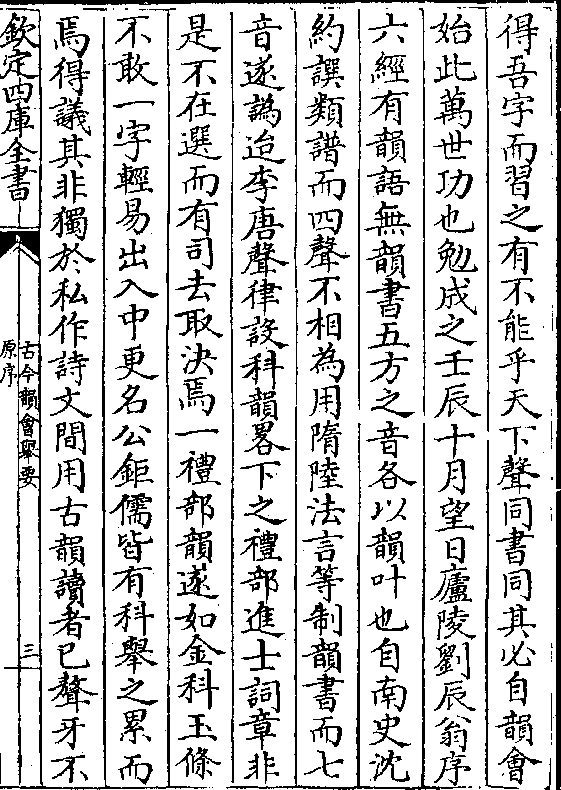 得吾字而習之有不能乎天下聲同書同其必自韻會
始此萬世功也勉成之壬辰十月望日廬陵劉辰翁序
六經有韻語無韻書五方之音各以韻叶也自南史沈
約譔類譜而四聲不相為用隋陸法言等制韻書而七
音遂譌迨李唐聲律設科韻畧下之禮部進士詞章非
是不在選而有司去取決焉一禮部韻遂如金科玉條
不敢一字輕易出入中更名公鉅儒皆有科舉之累而
焉得議其非獨於私作詩文間用古韻讀者已聱牙不
欽定四庫全書
古今韻會舉要
原序
三